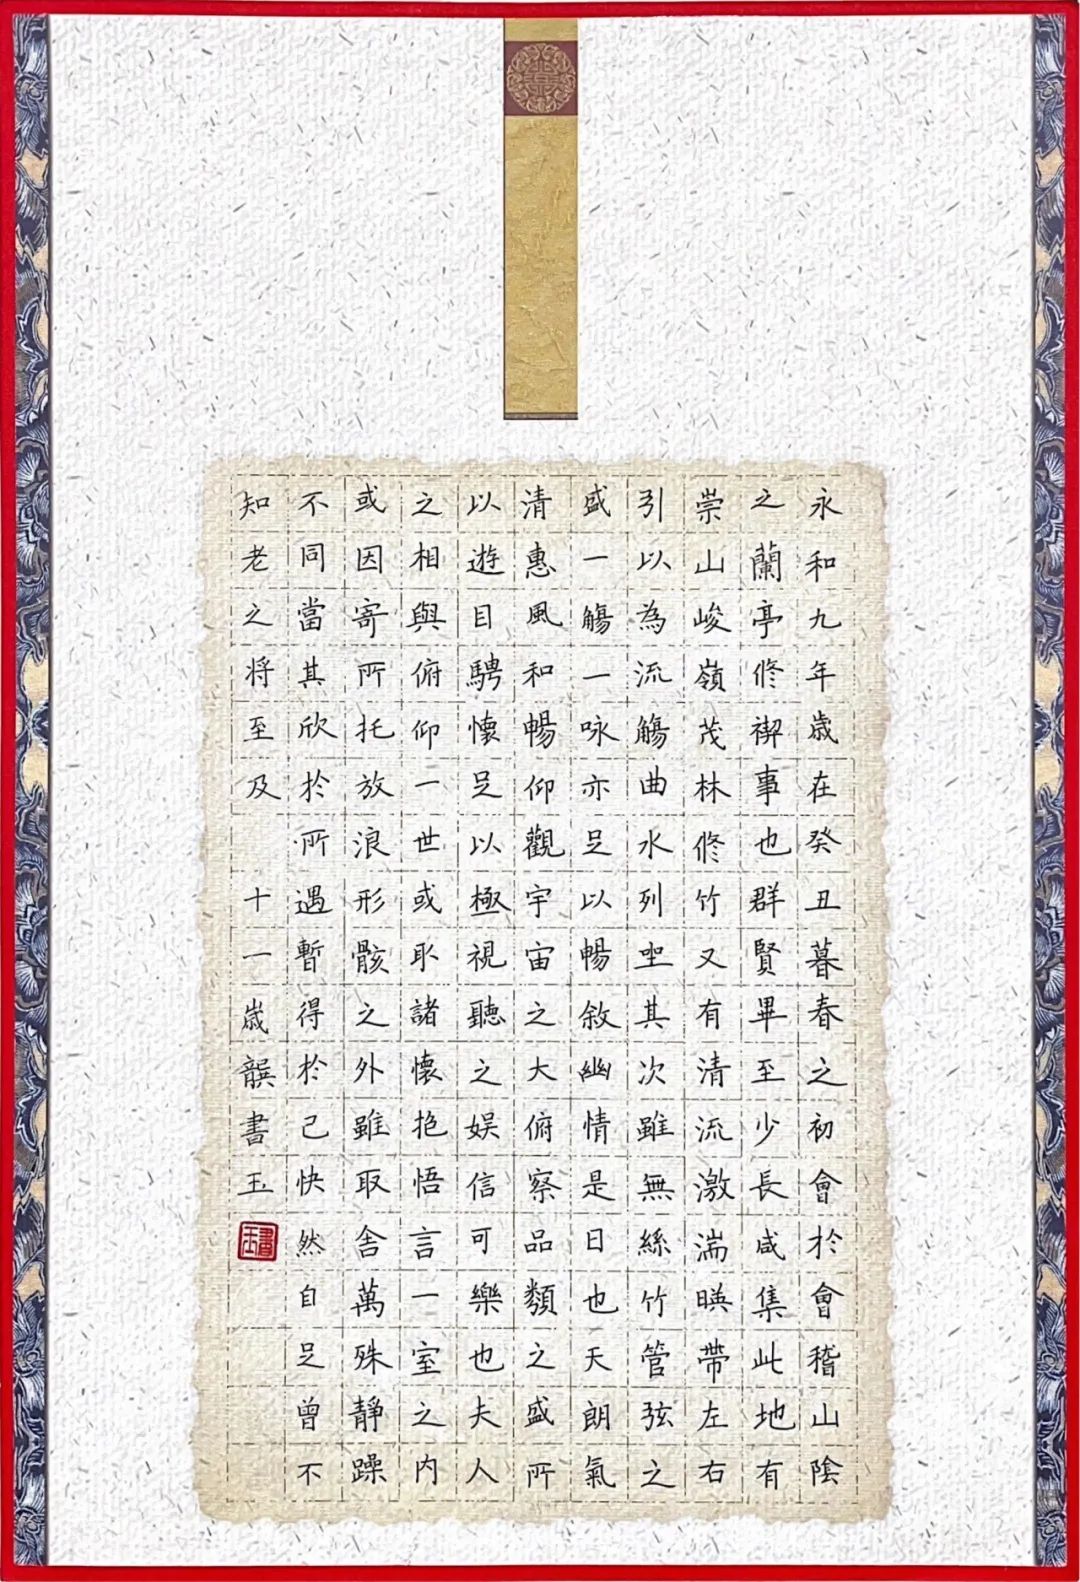 永和九年歲在癸丑暮春之初會於會稽山陰
之蘭亭修禊事也群賢畢至少長咸集此地有
崇山峻嶺茂林修竹又有清流激湍暎帶左右
引以為流觴曲水列坐其次雖無絲竹管弦之
盛一觴一咏亦足以暢敘幽情是日也天朗氣
清惠風和暢仰觀宇宙之大俯察品類之盛所
以遊目騁懷足以極視聽之娛信可樂也夫人
之相與俯仰一世或取諸懷抱悟言一室之內
或因寄所托放浪形骸之外雖取舍萬殊靜躁
不同當其欣於所遇暫得於己快然自足曾不
知老之將至及 十一歲龔書玉
書玉